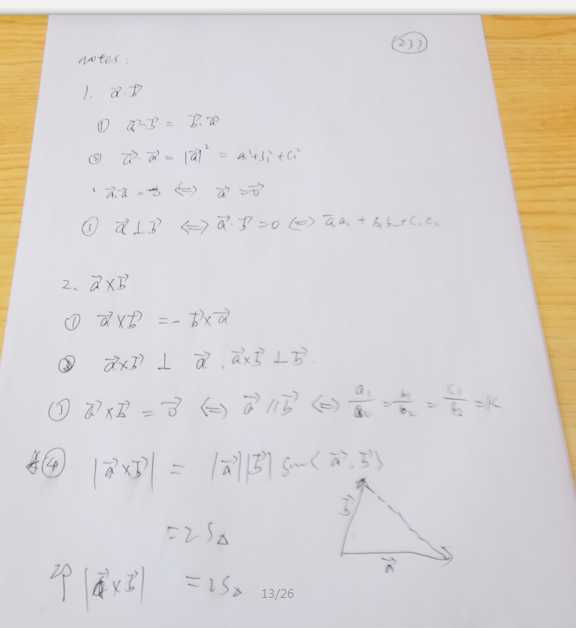 (233)
notes:
1. a⃗·b⃗
① a⃗·b⃗ = b⃗·a⃗
② a⃗·a⃗ = |a⃗|² = a₁²+b₁²+c₁²
a⃗·a⃗ = 0 ⇔ a⃗ = 0⃗
③ a⃗⊥b⃗ ⇔ a⃗·b⃗ = 0 ⇔ a₁a₂ + b₁b₂ + c₁c₂
2. a⃗×b⃗
① a⃗×b⃗ = -b⃗×a⃗
② a⃗×b⃗ ⊥ a⃗, a⃗×b⃗ ⊥ b⃗.
③ a⃗×b⃗ = 0⃗ ⇔ a⃗//b⃗ ⇔ a₁/a₂ = b₁/b₂ = c₁/c₂ = k
④ |a⃗×b⃗| = |a⃗||b⃗| sin⟨a⃗,b⃗⟩
= 2S△
b⃗
a⃗
即 |a⃗×b⃗| = 2S△
13/26